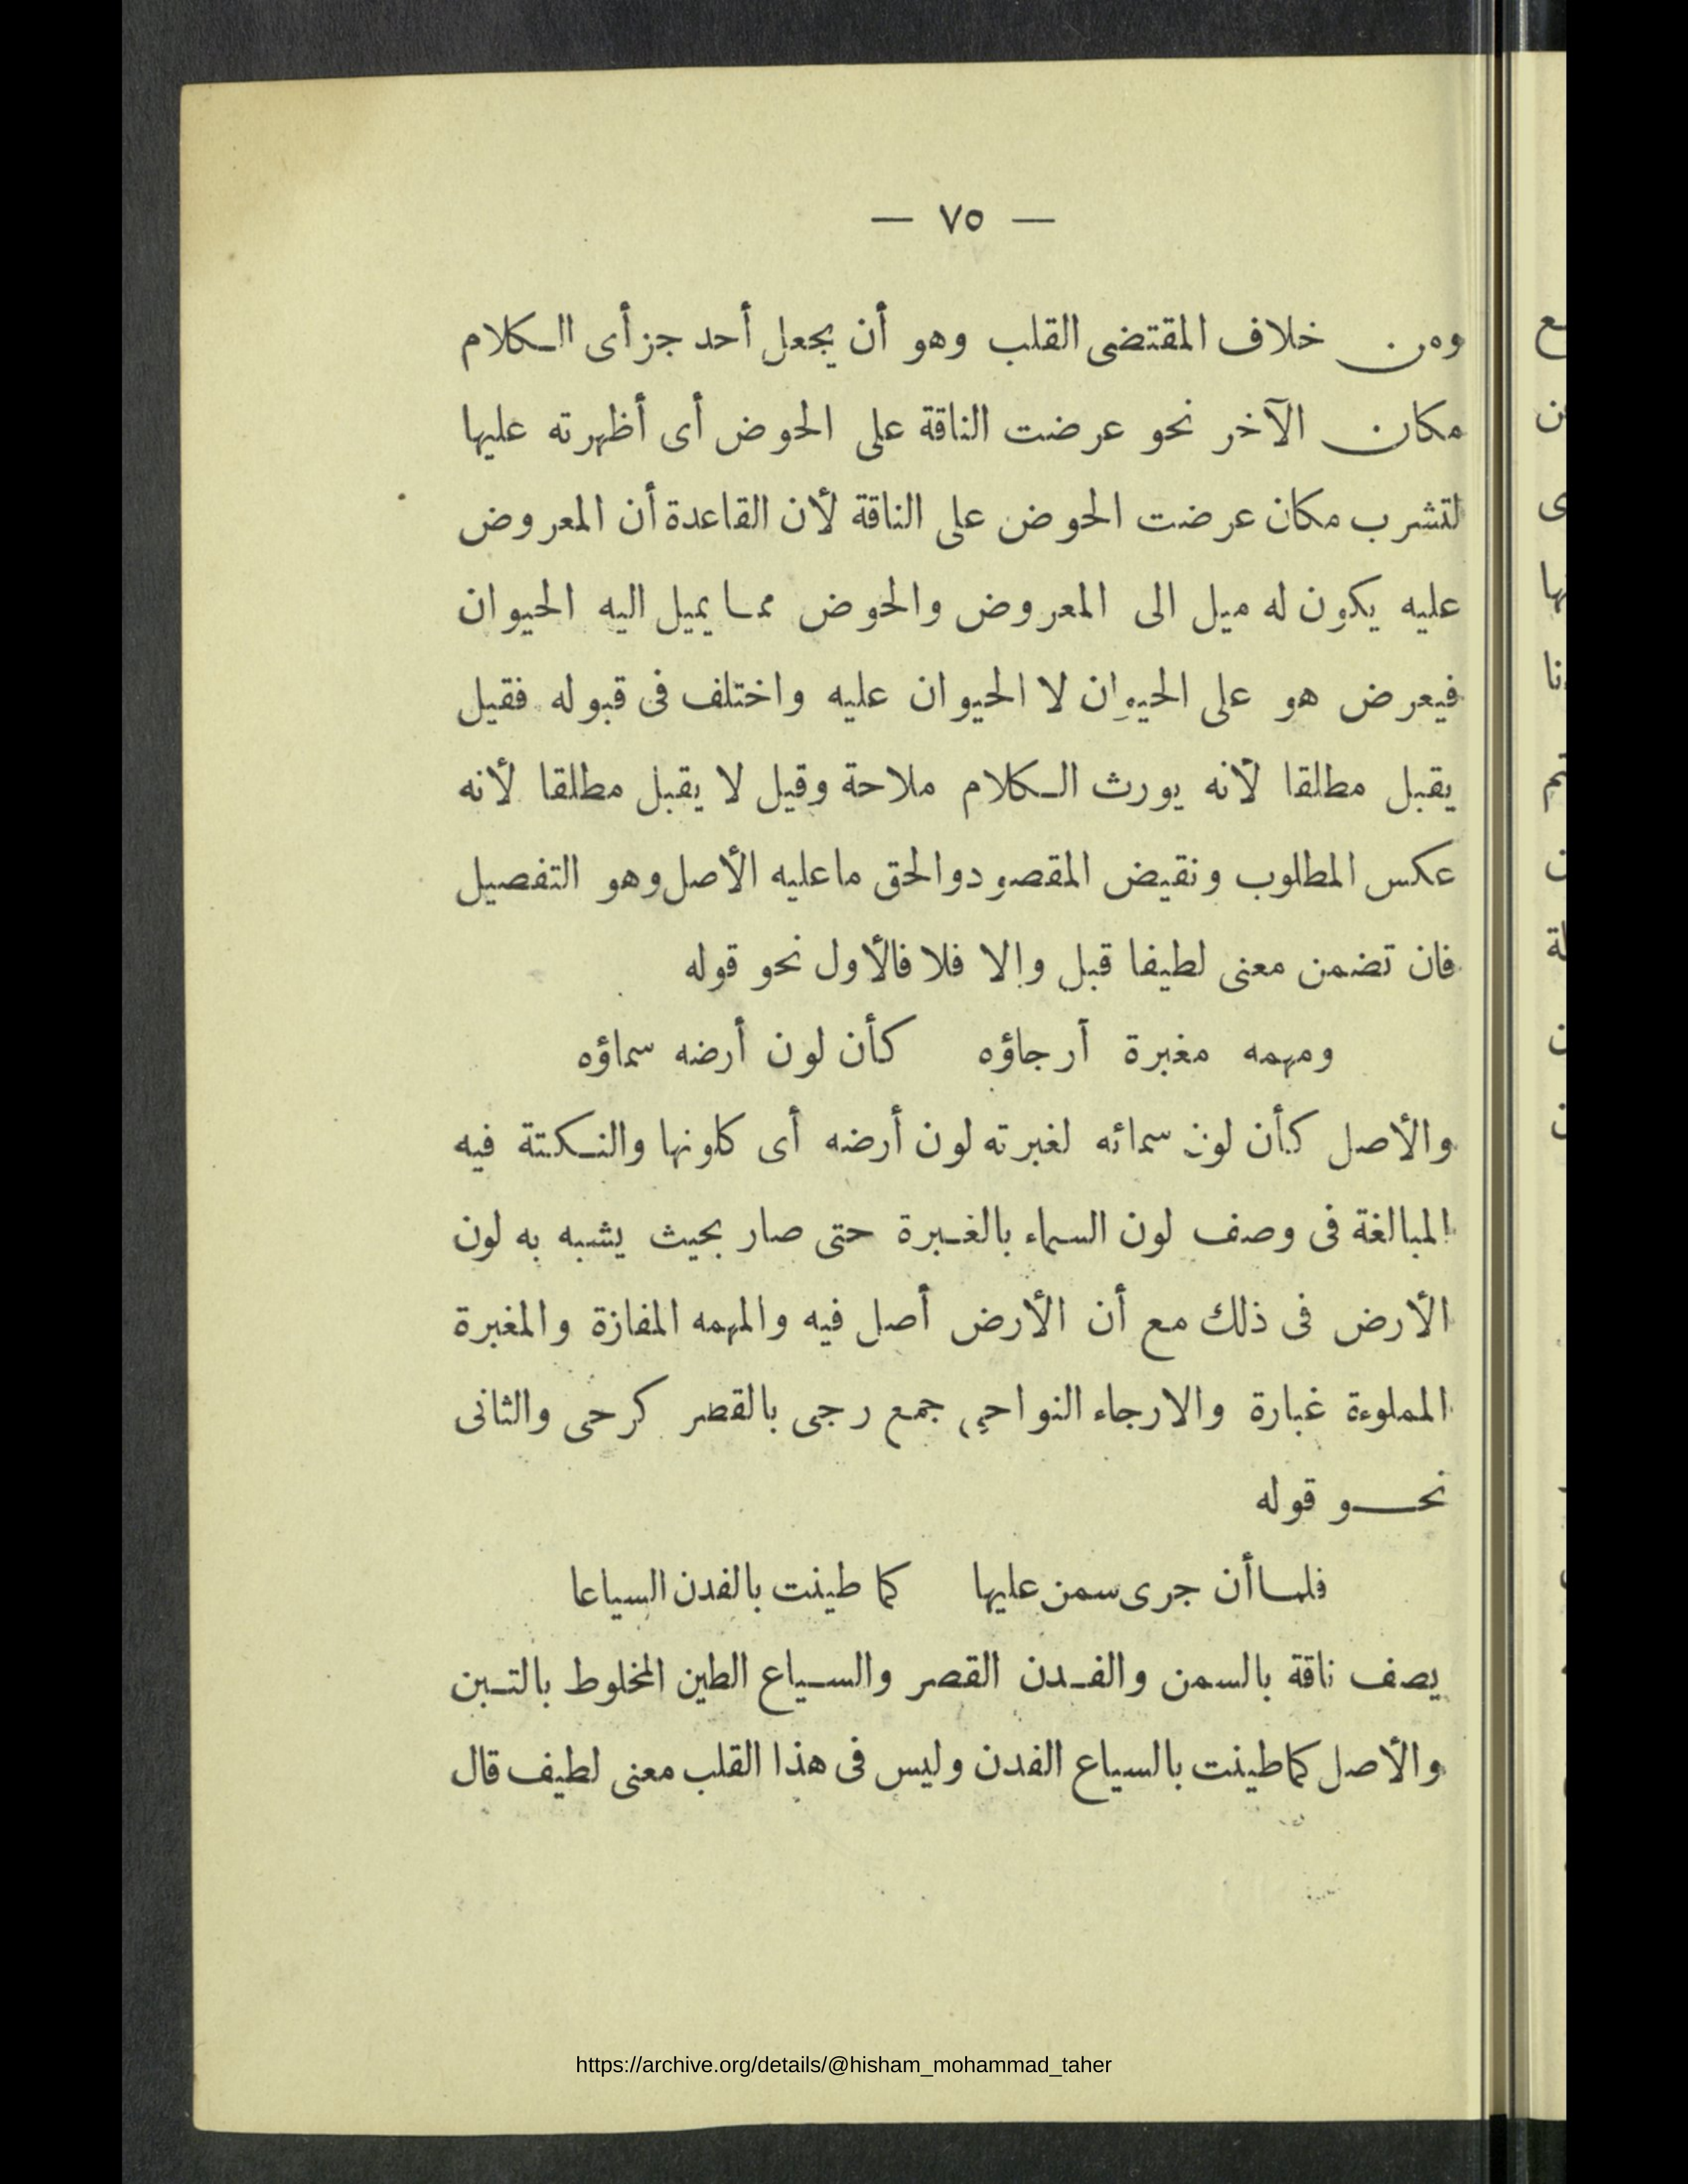 — ٧٥ —
ومن خلاف المقتضى القلب وهو أن يجعل أحد جزأى الكلام
مكان الآخر نحو عرضت الناقة على الحوض أى أظهرته عليها
لتشرب مكان عرضت الحوض على الناقة لأن القاعدة أن المعروض
عليه يكون له ميل الى المعروض والحوض مما يميل اليه الحيوان
فيعرض هو على الحيوان لا الحيوان عليه واختلف فى قبوله فقيل
يقبل مطلقا لأنه يورث الكلام ملاحة وقيل لا يقبل مطلقا لأنه
عكس المطلوب ونقيض المقصود والحق ما عليه الأصل وهو التفصيل
فان تضمن معنى لطيفا قبل وإلا فلا فالأول نحو قوله
ومهمه مغبرة أرجاؤه كأن لون أرضه سماؤه
والأصل كأن لون سمائه لغبرته لون أرضه أى كلونها والنكتة فيه
المبالغة فى وصف لون السماء بالغبرة حتى صار بحيث يشبه به لون
الأرض فى ذلك مع أن الأرض أصل فيه والمهمه المفازة والمغبرة
المملوءة غبارة والارجاء النواحى جمع رجى بالقصر كرحى والثانى
نحو قوله
فلما أن جرى سمن عليها كما طينت بالفدن السياعا
يصف ناقة بالسمن والفدن القصر والسياع الطين المخلوط بالتبن
والأصل كما طينت بالسياع الفدن وليس فى هذا القلب معنى لطيف قال
https://archive.org/details/@hisham_mohammad_taher